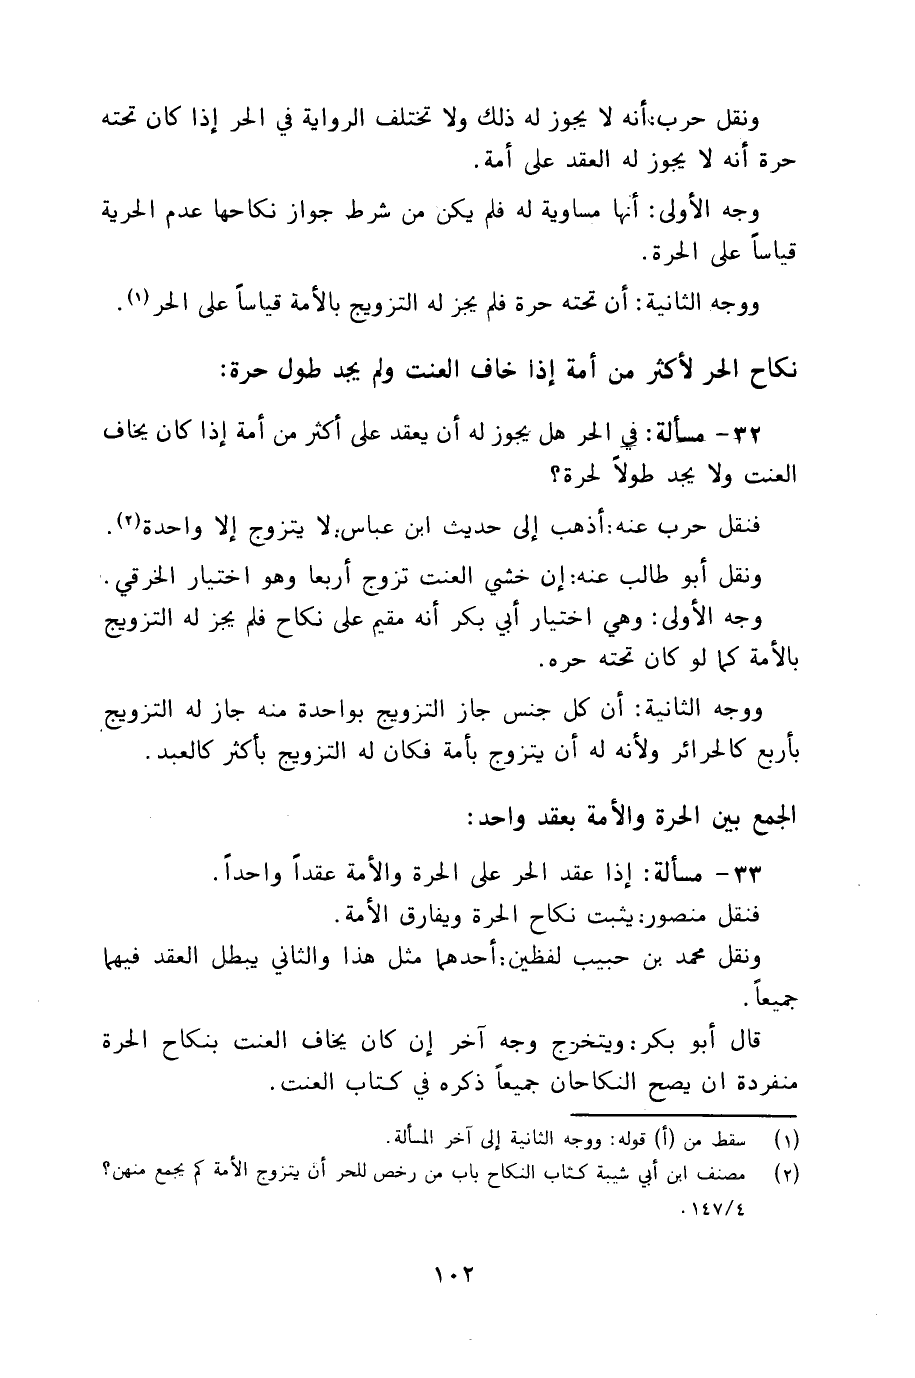 ونقل حرب: أنه لا يجوز له ذلك ولا تختلف الرواية في الحر إذا كان تحته
حرة أنه لا يجوز له العقد على أمة.
وجه الأولى: أنها مساوية له فلم يكن من شرط جواز نكاحها عدم الحرية
قياساً على الحرة.
ووجه الثانية: أن تحته حرة فلم يجز له التزويج بالأمة قياساً على الحر(١).
نكاح الحر لأكثر من أمة إذا خاف العنت ولم يجد طول حرة:
٣٢- مسألة: في الحر هل يجوز له أن يعقد على أكثر من أمة إذا كان يخاف
العنت ولا يجد طولاً لحرة؟
فنقل حرب عنه: أذهب إلى حديث ابن عباس: لا يتزوج إلا واحدة(٢).
ونقل أبو طالب عنه: إن خشي العنت تزوج أربعا وهو اختيار الخرقي.
وجه الأولى: وهي اختيار أبي بكر أنه مقيم على نكاح فلم يجز له التزويج
بالأمة كما لو كان تحته حره.
ووجه الثانية: أن كل جنس جاز التزويج بواحدة منه جاز له التزويج
بأربع كالحرائر ولأنه له أن يتزوج بأمة فكان له التزويج بأكثر كالعبد.
الجمع بين الحرة والأمة بعقد واحد:
٣٣- مسألة: إذا عقد الحر على الحرة والأمة عقداً واحداً.
فنقل منصور: يثبت نكاح الحرة ويفارق الأمة.
ونقل محمد بن حبيب لفظين: أحدهما مثل هذا والثاني يبطل العقد فيهما
جميعاً.
قال أبو بكر: ويتخرج وجه آخر إن كان يخاف العنت بنكاح الحرة
منفردة ان يصح النكاحان جميعاً ذكره في كتاب العنت.
(١) سقط من (أ) قوله: ووجه الثانية إلى آخر المسألة.
(٢) مصنف ابن أبي شيبة كتاب النكاح باب من رخص للحر أن يتزوج الأمة كم يجمع منهن؟
١٤٧/٤.
١٠٢